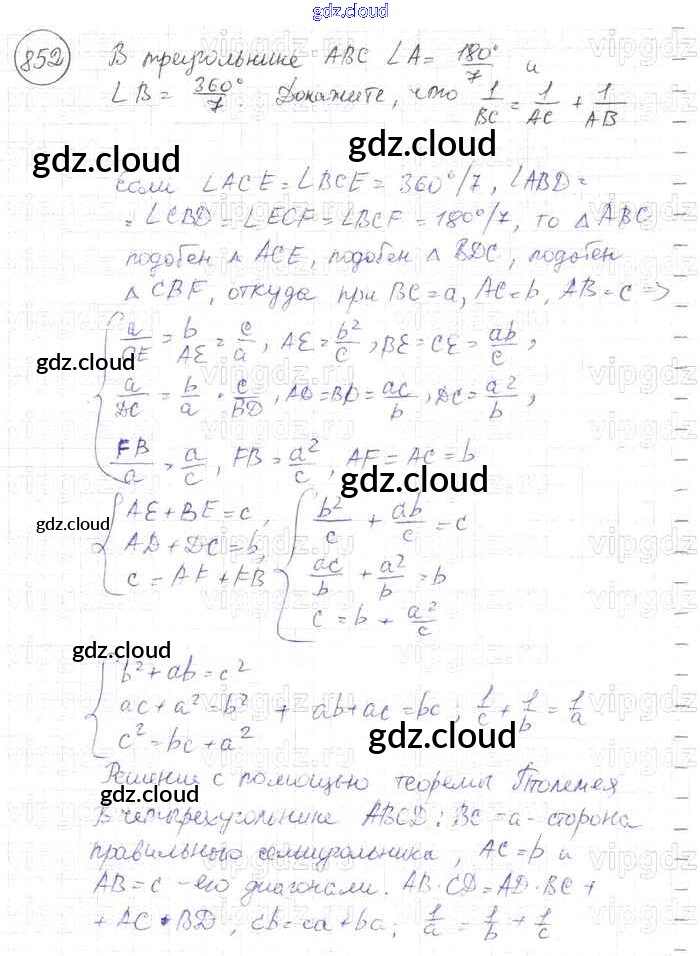 gdz.cloud
852 В треугольнике ABC ∠A = 180°/7 и
∠B = 360°/7. Докажите, что 1/BC = 1/AC + 1/AB
gdz.cloud
gdz.cloud
Если ∠ACE = ∠BCE = 360°/7, ∠ABD =
= ∠CBD = ∠ECF = ∠BCF = 180°/7, то △ABC
подобен △ ACE, подобен △ BDC, подобен
△ CBF, откуда при BC = a, AC = b, AB = c =>
a/CE = b/AE = c/a, AE = b²/c, BE = CE = ab/c,
gdz.cloud
a/DC = b/a · c/BD, AD = BD = ac/b, DC = a²/b,
FB/a = a/c, FB = a²/c, AF = AC = b
gdz.cloud
AE + BE = c, b²/c + ab/c = c
gdz.cloud
AD + DC = b, ac/b + a²/b = b
c = AF + FB c = b + a²/c
gdz.cloud
b² + ab = c²
ac + a² = b² + ab + ac = bc; 1/c + 1/b = 1/a
c² = bc + a²
gdz.cloud
Решение с помощью теоремы Птолемея
gdz.cloud
В четырехугольнике ABCD: BC = a - сторона
правильного семиугольника, AC = b и
AB = c - его диагонали. AB · CD = AD · BC +
+ AC · BD, cb = ca + ba; 1/a = 1/b + 1/c